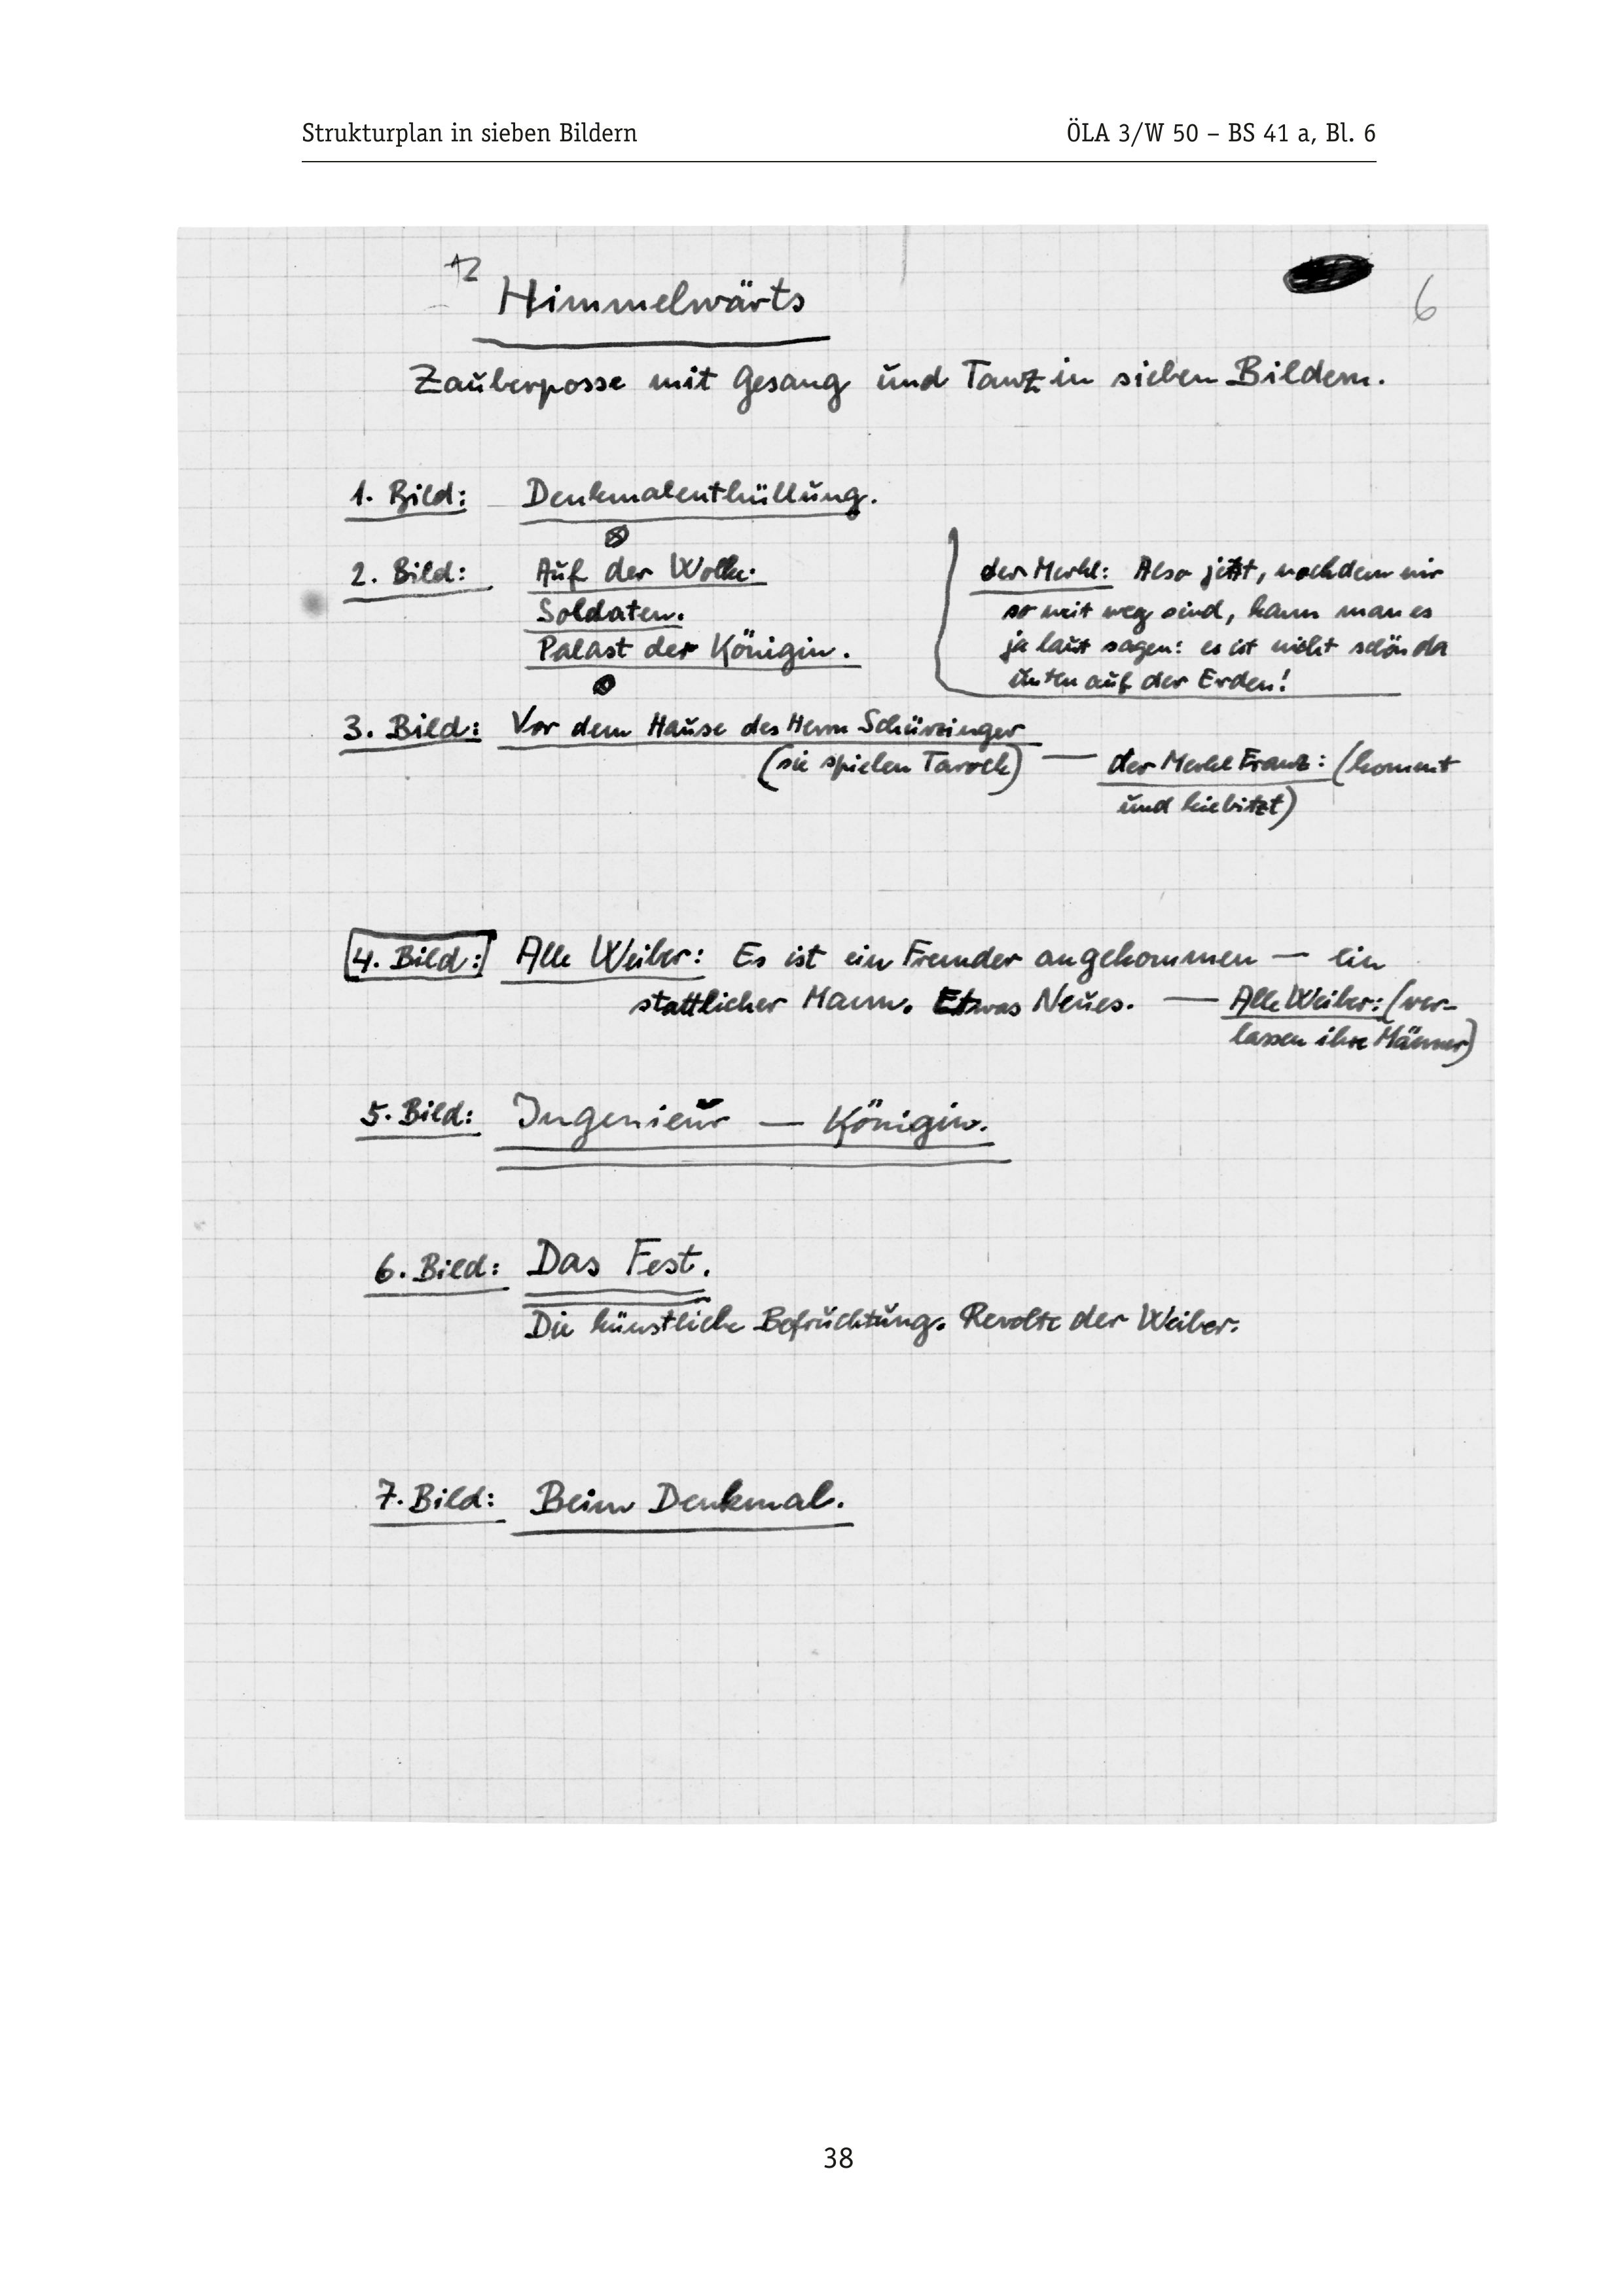 Strukturplan in sieben Bildern ÖLA 3/W 50 – BS 41 a, Bl. 6
6
Himmelwärts
Zauberposse mit Gesang und Tanz in sieben Bildern.
1. Bild: Denkmalenthüllung.
2. Bild: Auf der Wolke.
Soldaten.
Palast der Königin.
der Merkl: Also jetzt, nachdem wir
so weit weg sind, kann man es
ja laut sagen: es ist nicht schön da
unten auf der Erden!
3. Bild: Vor dem Hause des Herrn Schürzinger
(sie spielen Tarock) — der Merkl Franz: (kommt
und kiebitzt)
4. Bild: Alle Weiber: Es ist ein Fremder angekommen — ein
stattlicher Mann. Etwas Neues. — Alle Weiber: (ver-
lassen ihre Männer)
5. Bild: Ingenieur — Königin.
6. Bild: Das Fest.
Die künstliche Befruchtung. Revolte der Weiber.
7. Bild: Beim Denkmal.
38